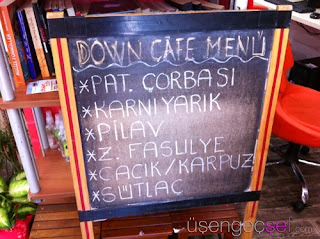 DOWN CAFE MENÜ
*PAT ÇORBASI
*KARNIYARIK
*PİLAV
*Z. FASULYE
*CACIK/KARPUZ
*SÜTLAÇ
üsengeçsef.com